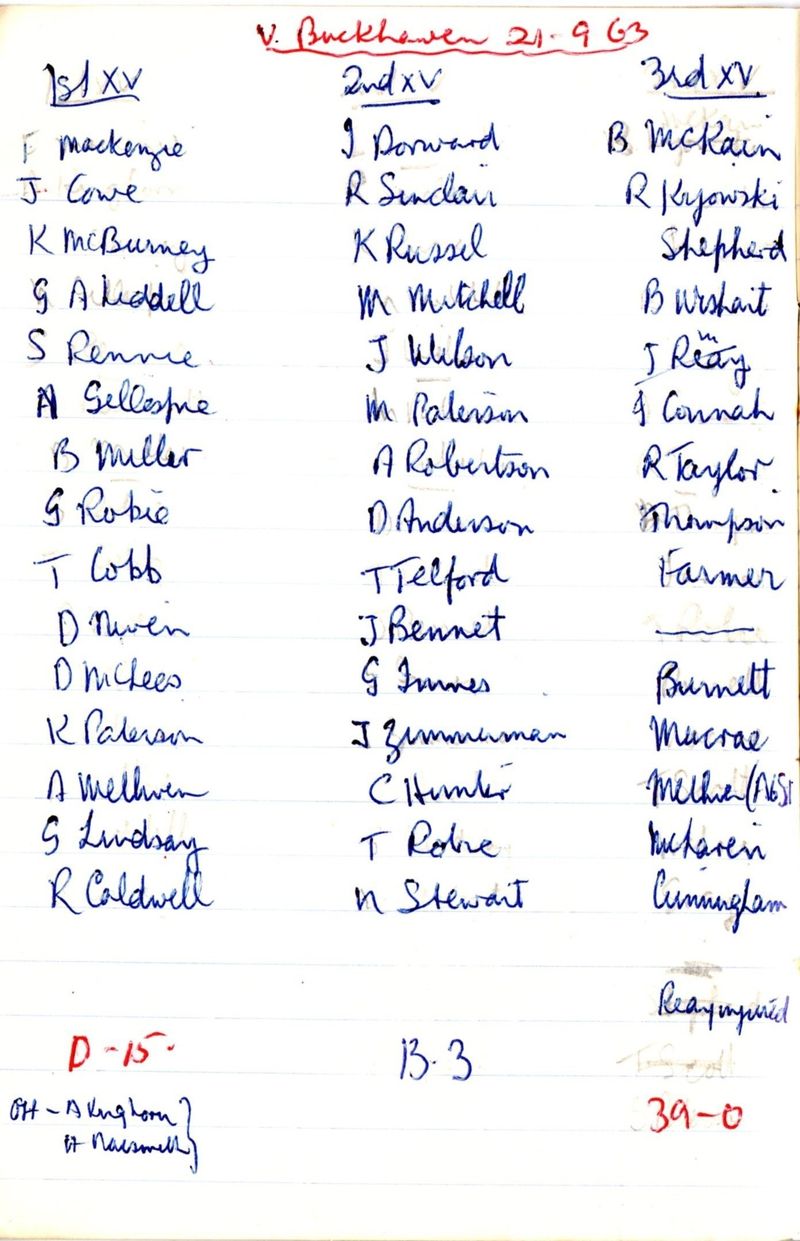 V. Buckhaven 21-9 63
1st XV 2nd XV 3rd XV.
F Mackenzie J Dorward B McKain
J Cowe R Sinclair R Kyowski
K McBurney K Russel Shepherd
G A Liddell M Mitchell B Urshait
S Rennie J Wilson J Reay
A Gillespie M Paterson J Connah
B Miller A Robertson R Taylor
G Robie D Anderson Thompson
T Cobb T Telford Farmer
D Niven J Bennet
D McLees G Innes Burnett
K Paterson J Zimmerman Macrae
A Methven C Hunter Methven
G Lindsay T Robie McLaren
R Caldwell N Stewart Cunningham
Reay injured
D-15. B.3
39-0
A Kinghorn